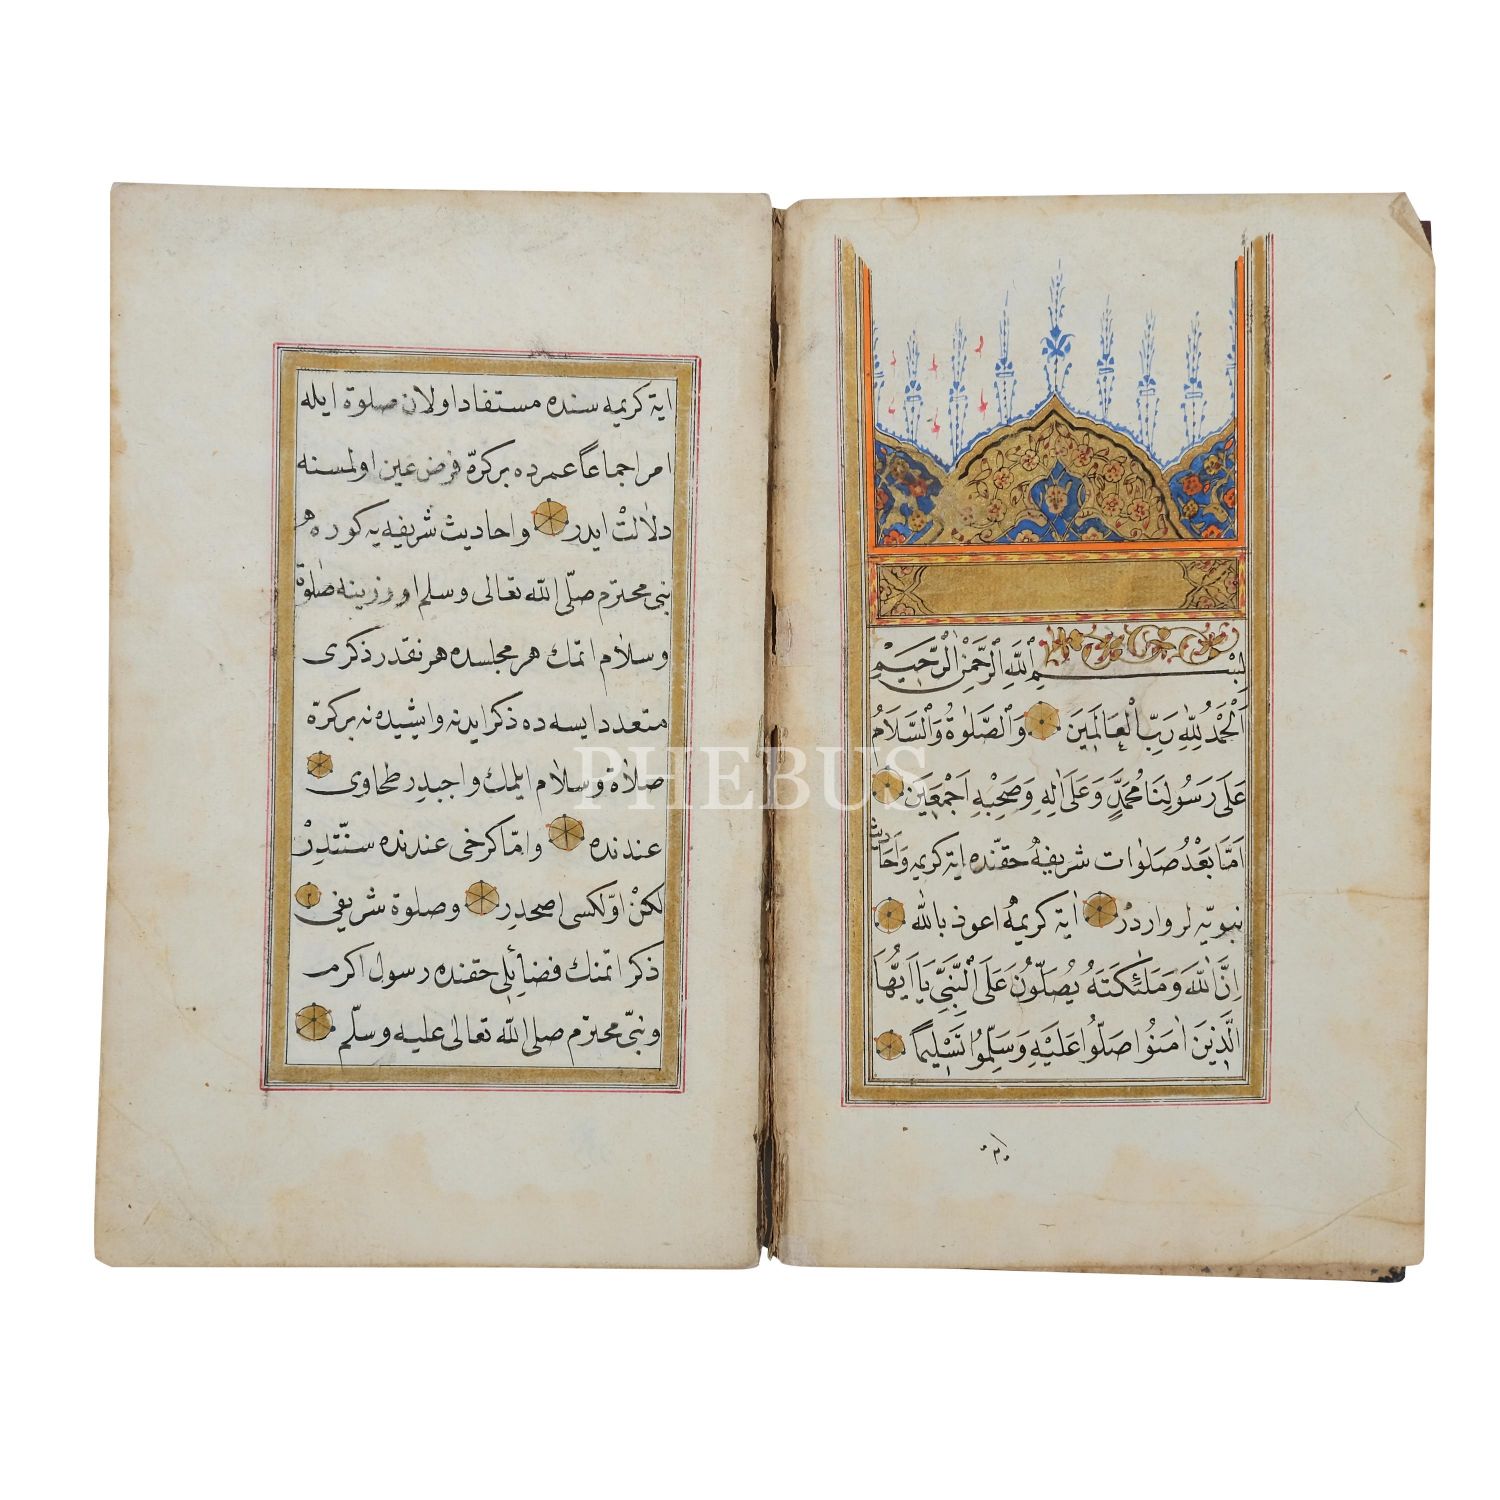 بسم الله الرحمن الرحيم
اَلْحَمْدُ لِلّٰهِ رَبِّ الْعَالَمِينَ وَالصَّلٰوةُ وَالسَّلَامُ
عَلٰى رَسُولِنَا مُحَمَّدٍ وَعَلٰى اٰلِهِ وَصَحْبِهِ اَجْمَعِينَ
اَمَّا بَعْدُ صَلَوات شريفهٔ حقنده اية كريمه وَاَحَاديث
نبويّه لر واردر اية كريمهٔ اعوذ بالله
اِنَّ اللهَ وَمَلٰئِكَتَهُ يُصَلُّونَ عَلَى النَّبِيِّ يَا اَيُّهَا
الَّذِينَ اٰمَنُوا صَلُّوا عَلَيْهِ وَسَلِّمُوا تَسْلِيمًا
اية كريمه سنده مستفاد اولان صلوة ايله
امر اجماعًا عمرده بركرّه فرض عين اولمسنه
دلالتْ ايدر واحاديث شريفه يه كوره هر
نبىّ محترم صلّى الله تعالى وسلم اوزرينه صلوة
وسلام اتمك هر مجلسده هر نقدر ذكرى
متعدد ايسه ده ذكر ايدنه وايشيده نه بركرّة
صلاة وسلام ايلمك واجبدر طحاوى
عندنده وامّا كرخى عندنده سنّتدِرْ
لكنْ اوّلكسى اصحدِر وصلوة شريفى
ذكر اتمنك فضائلى حقنده رسول اكرم
ونبىّ محترم صلى الله تعالى عليه وسلّم
PHEBUS